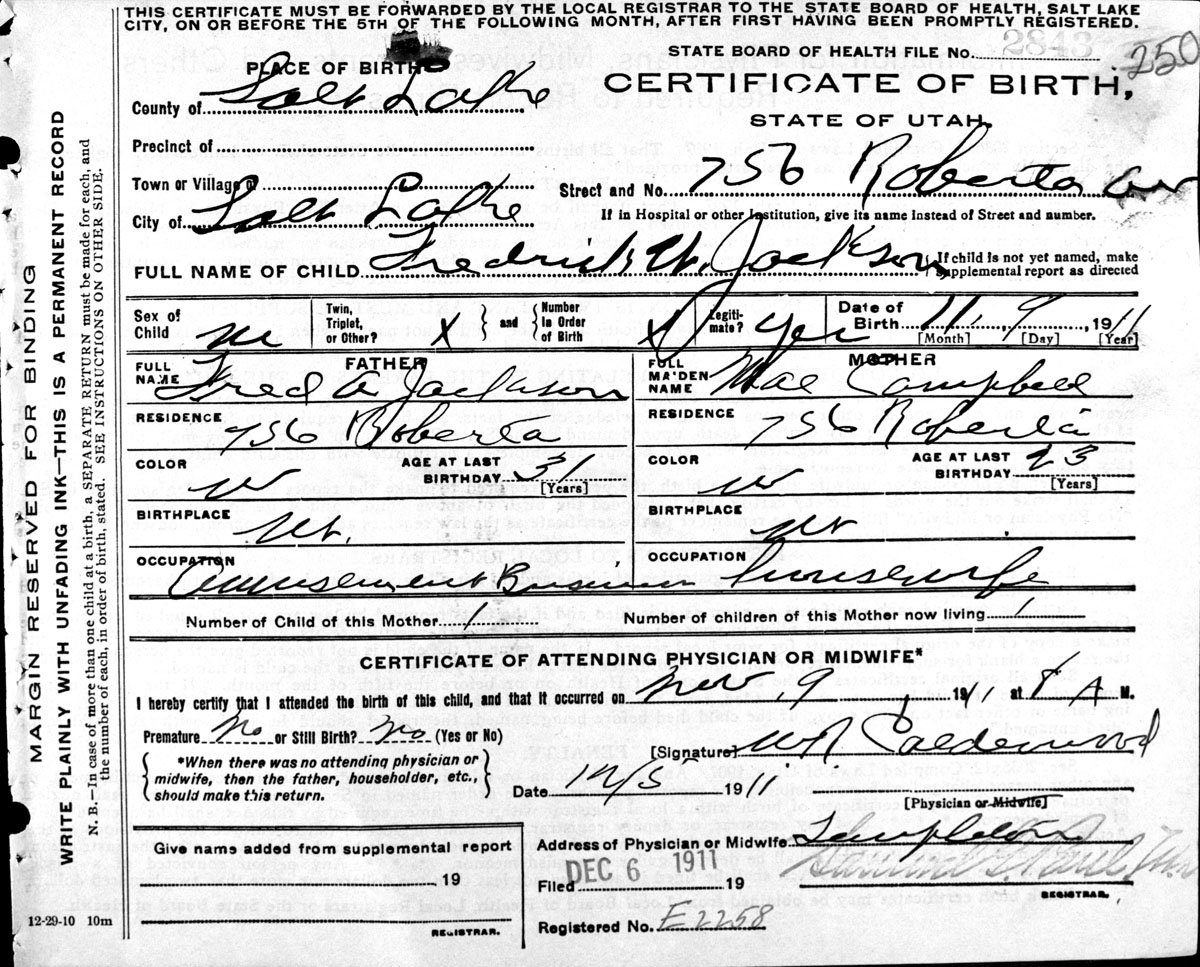 THIS CERTIFICATE MUST BE FORWARDED BY THE LOCAL REGISTRAR TO THE STATE BOARD OF HEALTH, SALT LAKE
CITY, ON OR BEFORE THE 5TH OF THE FOLLOWING MONTH, AFTER FIRST HAVING BEEN PROMPTLY REGISTERED.
STATE BOARD OF HEALTH FILE No. 2843 250
PLACE OF BIRTH
CERTIFICATE OF BIRTH,
STATE OF UTAH.
County of Salt Lake
Precinct of
Town or Village of
Street and No. 756 Roberta Av
City of Salt Lake
If in Hospital or other Institution, give its name instead of Street and number.
FULL NAME OF CHILD Fredrick W. Jackson
If child is not yet named, make
supplemental report as directed
Sex of Child M
Twin, Triplet, or Other? X
and
Number in Order of Birth X
Legiti-mate? Yes
Date of Birth 11, 9, 1911
[Month] [Day] [Year]
FATHER
FULL NAME Fred A Jackson
MOTHER
FULL MAIDEN NAME Mae Campbell
RESIDENCE 756 Roberta
RESIDENCE 756 Roberta
COLOR W
AGE AT LAST BIRTHDAY 31 [Years]
COLOR W
AGE AT LAST BIRTHDAY 23 (Years]
BIRTHPLACE Ut.
BIRTHPLACE Ut
OCCUPATION Amusement Business
OCCUPATION housewife
Number of Child of this Mother 1
Number of children of this Mother now living 1
CERTIFICATE OF ATTENDING PHYSICIAN OR MIDWIFE*
I hereby certify that I attended the birth of this child, and that it occurred on Nov 9, 1911 at 8 A M.
Premature No or Still Birth? No (Yes or No)
*When there was no attending physician or
midwife, then the father, householder, etc.,
should make this return.
[Signature] W R Calderwood
Date 12/5 1911
[Physician or Midwife]
Address of Physician or Midwife Templeton
Give name added from supplemental report
, 19
REGISTRAR.
Filed DEC 6 1911 19
REGISTRAR.
Registered No. E2258
12-29-10 10m
MARGIN RESERVED FOR BINDING
WRITE PLAINLY WITH UNFADING INK—THIS IS A PERMANENT RECORD
N. B.—In case of more than one child at a birth, a SEPARATE RETURN must be made for each, and
the number of each, in order of birth, stated. SEE INSTRUCTIONS ON OTHER SIDE.